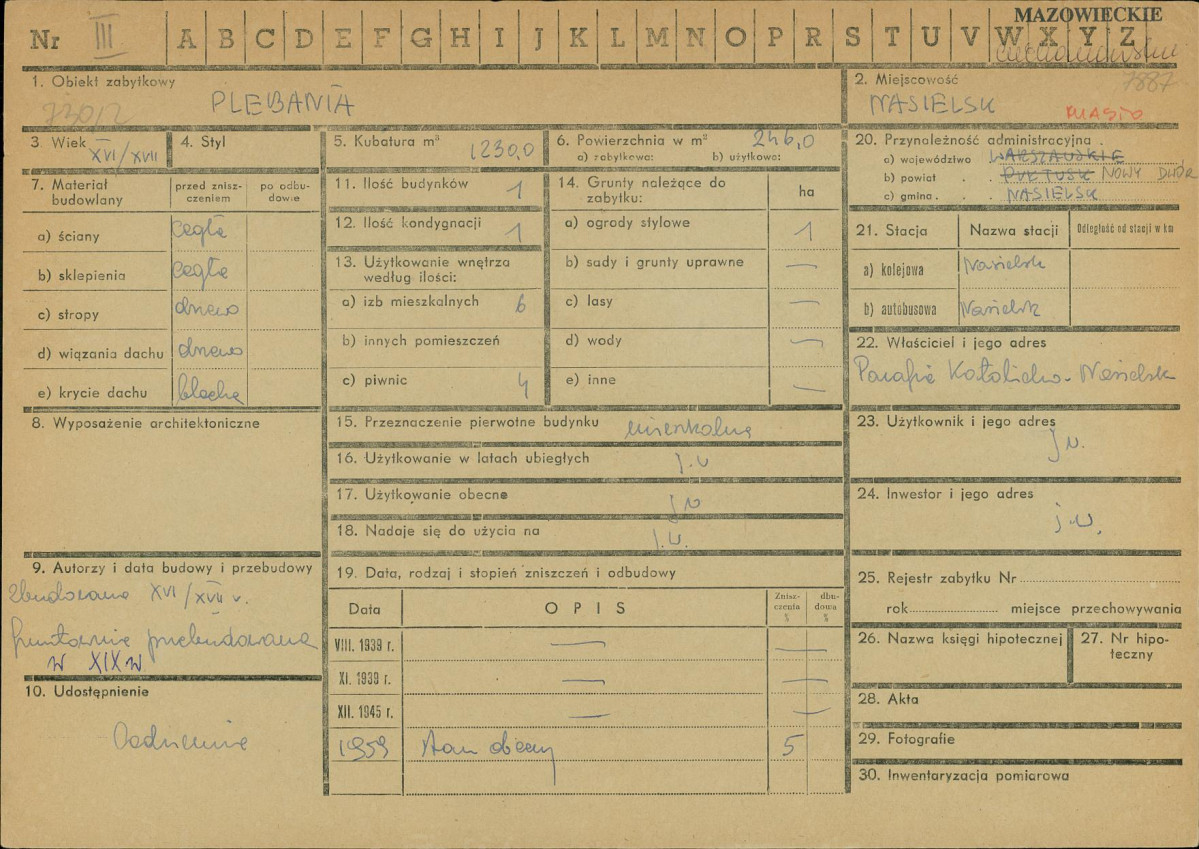 MAZOWIECKIE
Nr III A B C D E F G H I J K L M N O P R S T U V W X Y Z
1. Obiekt zabytkowy
730/2
PLEBANIA
2. Miejscowość
7887
NASIELSK
MIASTO
3. Wiek XVI/XVII
4. Styl
5. Kubatura m³ 1230,0
6. Powierzchnia w m² 246,0
a) zabytkowa: b) użytkowa:
7. Materiał budowlany
przed zniszczeniem
po odbudowie
a) ściany cegła
b) sklepienia cegła
c) stropy drzewo
d) wiązania dachu drzewo
e) krycie dachu blacha
8. Wyposażenie architektoniczne
9. Autorzy i data budowy i przebudowy
zbudowana XVI/XVII w.
gruntownie przebudowana
w XIX w
10. Udostępnienie
Codziennie
11. Ilość budynków 1
12. Ilość kondygnacji 1
13. Użytkowanie wnętrza
według ilości:
a) izb mieszkalnych 6
b) innych pomieszczeń
c) piwnic 4
14. Grunty należące do
zabytku:
ha
a) ogrody stylowe 1
b) sady i grunty uprawne —
c) lasy —
d) wody —
e) inne —
15. Przeznaczenie pierwotne budynku mieszkalne
16. Użytkowanie w latach ubiegłych j.w
17. Użytkowanie obecne j w
18. Nadaje się do użycia na j.w.
19. Data, rodzaj i stopień zniszczeń i odbudowy
Data OPIS Zniszczenia % dbudowa %
VIII. 1939 r. — —
XI. 1939 r. — —
XII. 1945 r. — —
1959 stan obecny 5
20. Przynależność administracyjna
a) województwo WARSZAWSKIE
b) powiat PUŁTUSK NOWY DWÓR
c) gmina NASIELSK
21. Stacja Nazwa stacji Odległość od stacji w km
a) kolejowa Nasielsk
b) autobusowa Nasielsk
22. Właściciel i jego adres
Parafia Katolicka - Nasielsk
23. Użytkownik i jego adres
j w.
24. Inwestor i jego adres
j.w.
25. Rejestr zabytku Nr
rok miejsce przechowywania
26. Nazwa księgi hipotecznej
27. Nr hipoteczny
28. Akta
29. Fotografie
30. Inwentaryzacja pomiarowa